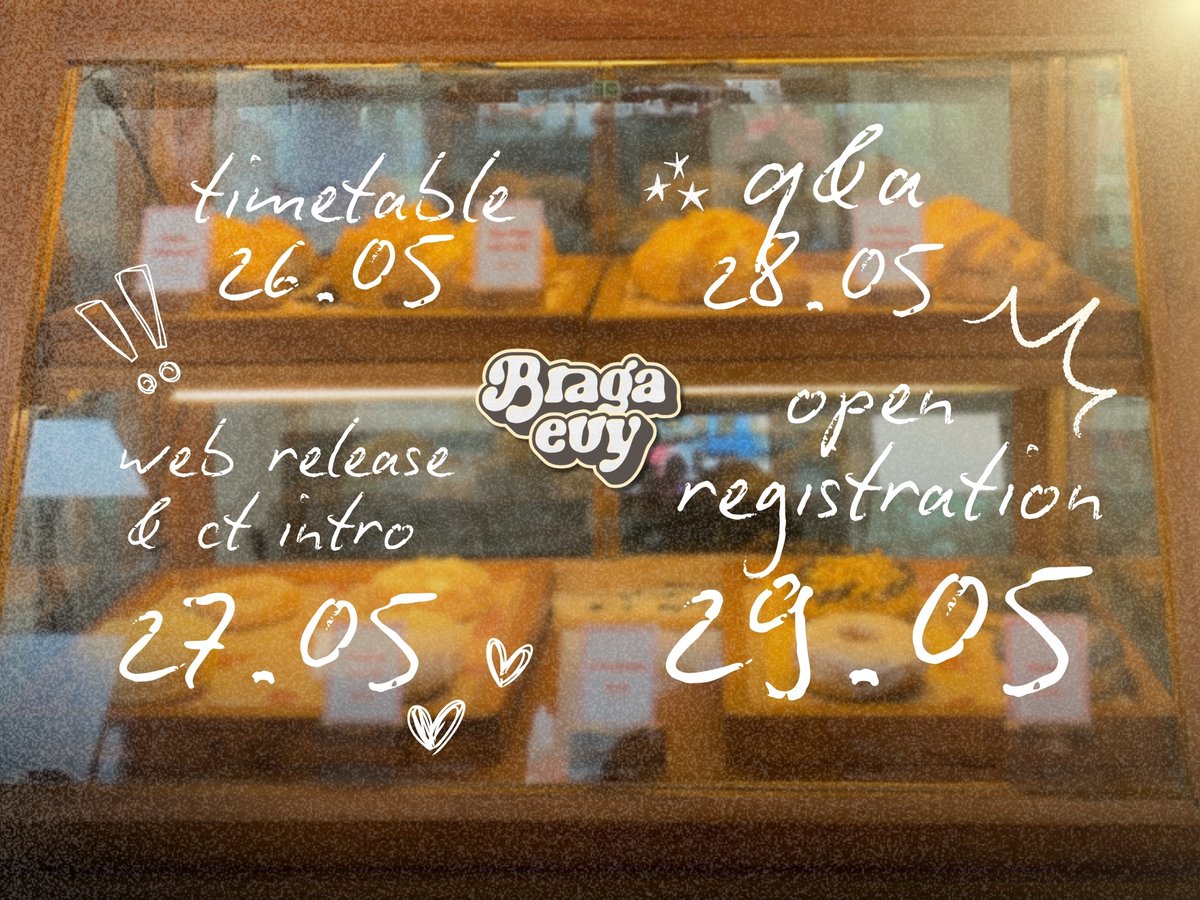 timetable
26.05
q&a
28.05
Braga
evy
web release
& ct intro
27.05
open
registration
29.05